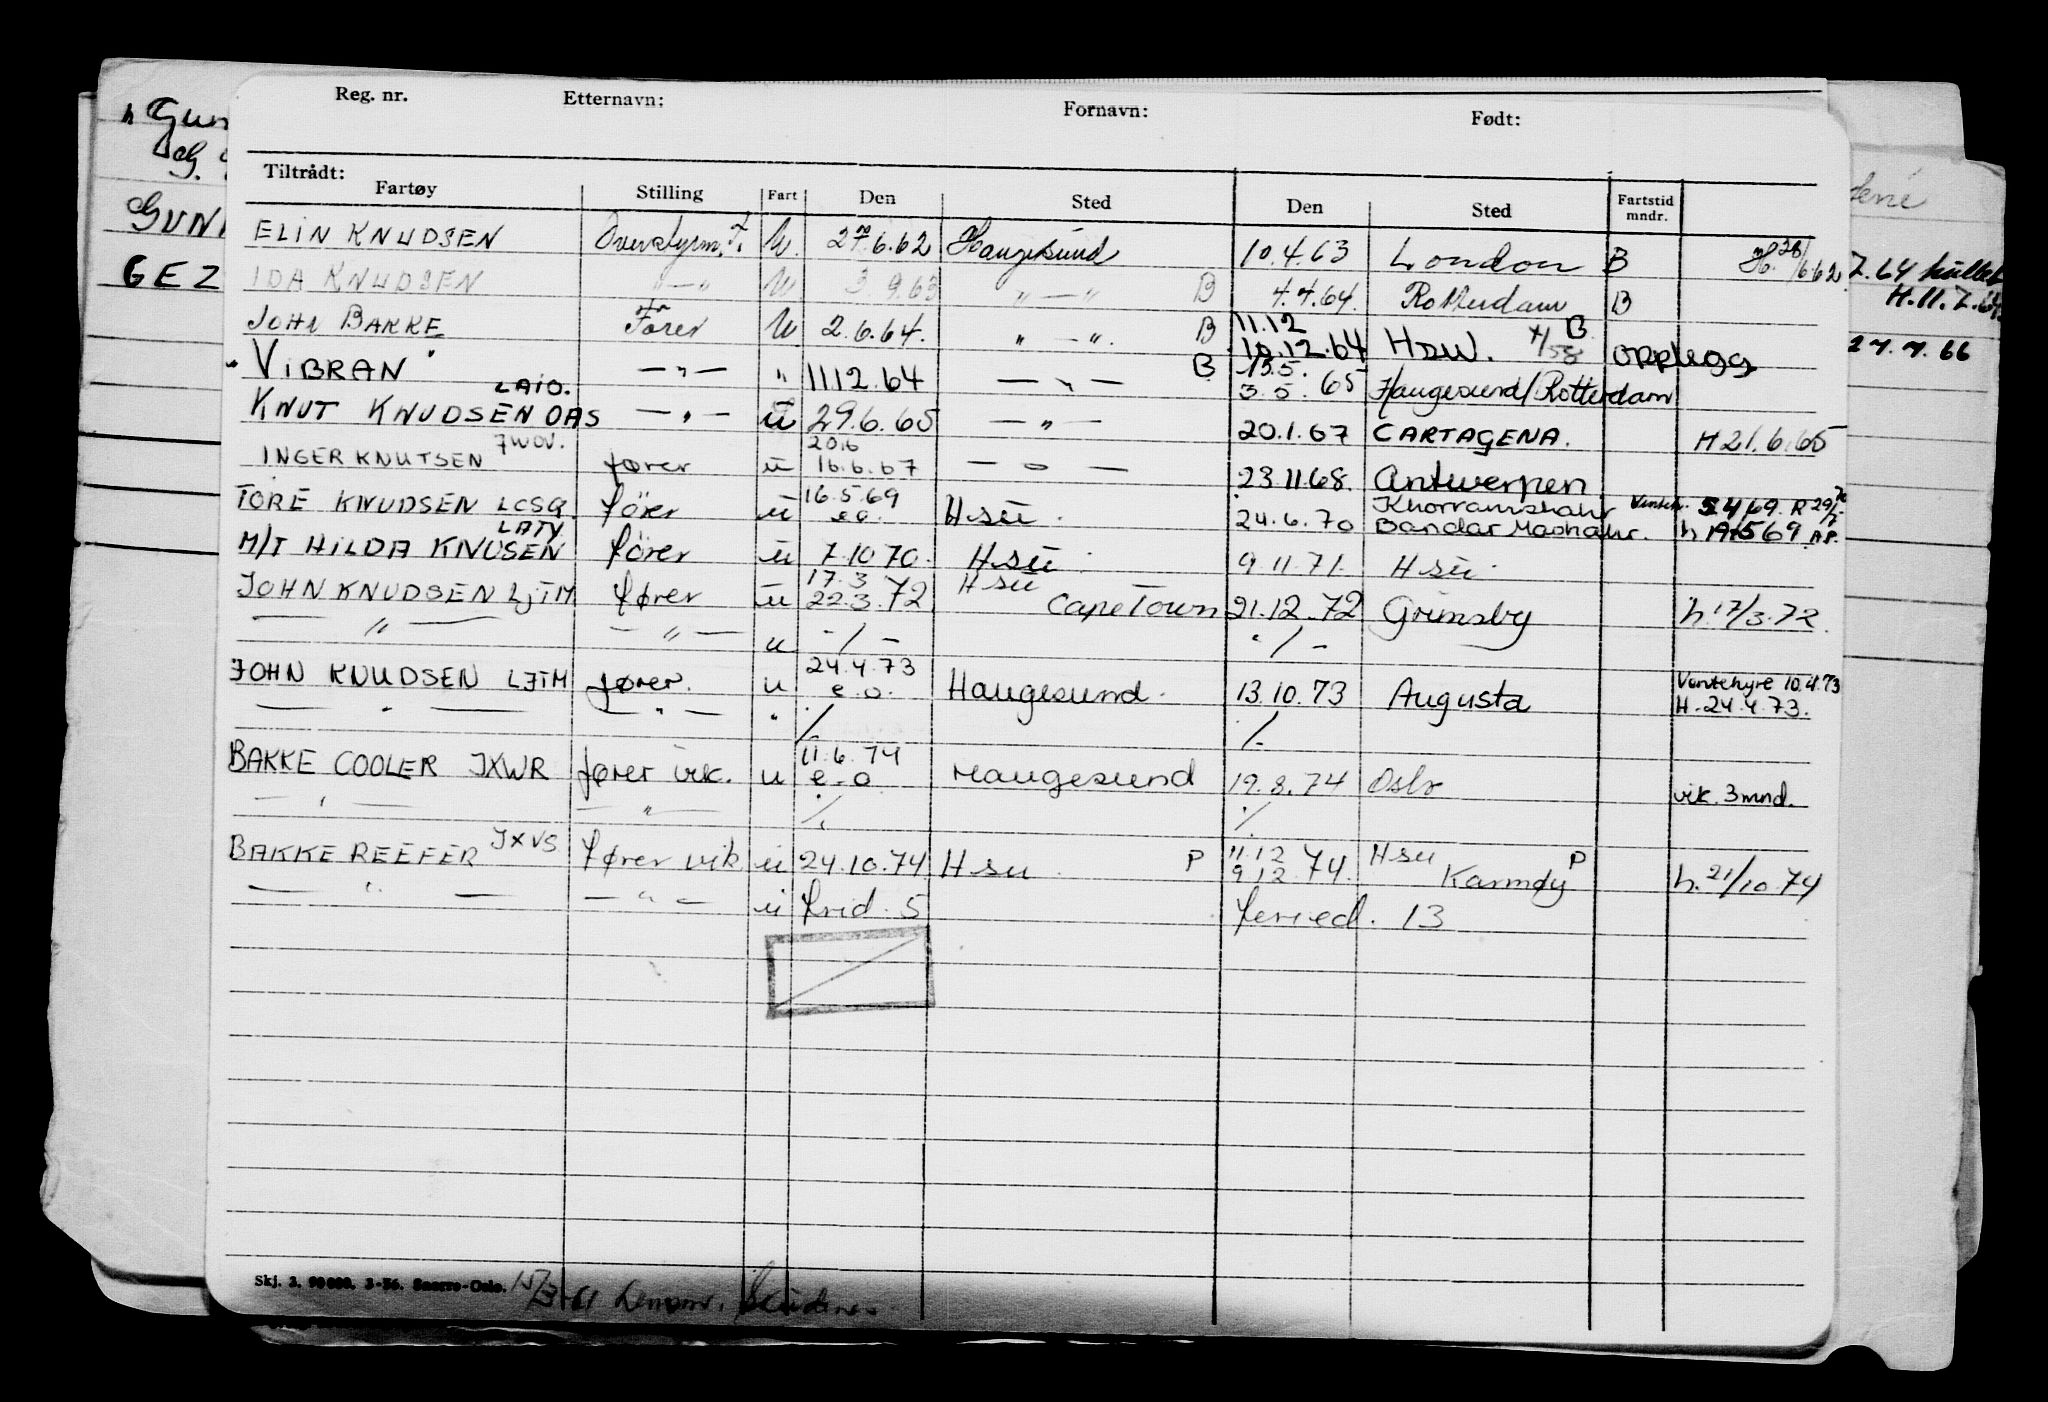 Reg. nr. Etternavn: Fornavn: Født:
Tiltrådt:
Fartøy Stilling Fart Den Sted Den Sted Fartstid mndr.
ELIN KNUDSEN Overstyrm. F. U. 27.6.62 Haugesund 10.4.63 London B H. 26/6.62
IDA KNUDSEN — " — U 3.9.63 " — " B 4.4.64. Rotterdam B
JOHN BAKKE Fører U 2.6.64. " — " B 11.12 10.12.64 HSU. B opplegg
" VIBRAN " — " — " 11.12.64 — " — B 13.5. 3.5.65 Haugesund/Rotterdam
KNUT KNUDSEN OAS LAIO. — " — ü 29.6.65 — " — 20.1.67 CARTAGENA. H 21.6.65
INGER KNUTSEN JWOV. fører ü 20.6 16.6.67 — " — 23.11.68. Antwerpen
TORE KNUDSEN LCSG fører ü 16.5.69 e.o. Hsü. 24.6.70 Khorramshahr Bandar Mashahr.
M/T HILDA KNUSEN LATY fører ü 7.10.70. Hsü. 9.11.71. Hsü.
JOHN KNUDSEN LJTM fører ü 17.3 22.3.72 Hsü Cape Town 21.12.72 Grimsby h. 17/3.72.
— " — — " — u -/- -/-
JOHN KNUDSEN LJTM fører. u 24.4.73 e.o. Haugesund. 13.10.73 Augusta Ventehyre 10.4.73 H. 24.4.73.
— " — — " — " ./. ./.
BAKKE COOLER JXWR fører vik. u 11.6.74 e.o Haugesund 19.8.74 Oslo vik. 3 mnd.
— " — — " — ./. ./.
BAKKE REEFER JXVS fører vik ü 24.10.74 Hsu P 11.12 9.12.74. Hsu Karmøy P h. 21/10.74
— " — — " — ü frid. 5 feried. 13
Skj. 3. 90 000. 3-56. Snorre-Oslo.
"Gun
GUN
GEZ
7.64
H.11.7.64
27.7.66